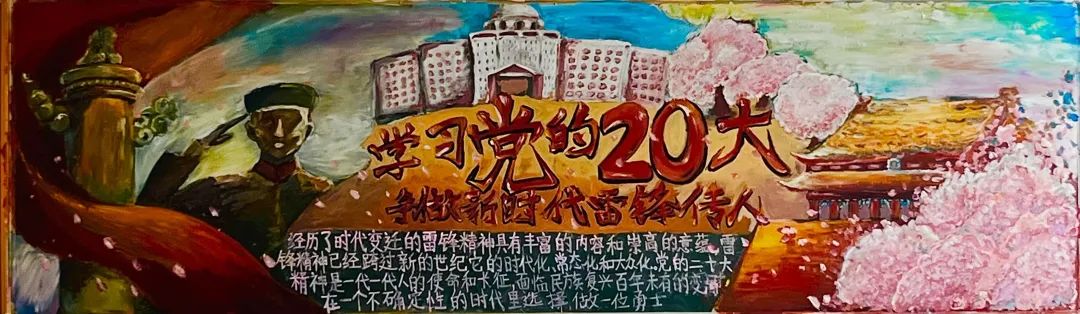 学习党的20大
争做新时代雷锋传人
经历了时代变迁的雷锋精神具有丰富的内容和崇高的意蕴,雷
锋精神已经跨过新的世纪它的时代化、常态化和大众化.党的二十大
精神是一代一代人的使命和卡征,面临民族复兴百年未有的变
在一个不确定性的时代里选择,做一位勇士